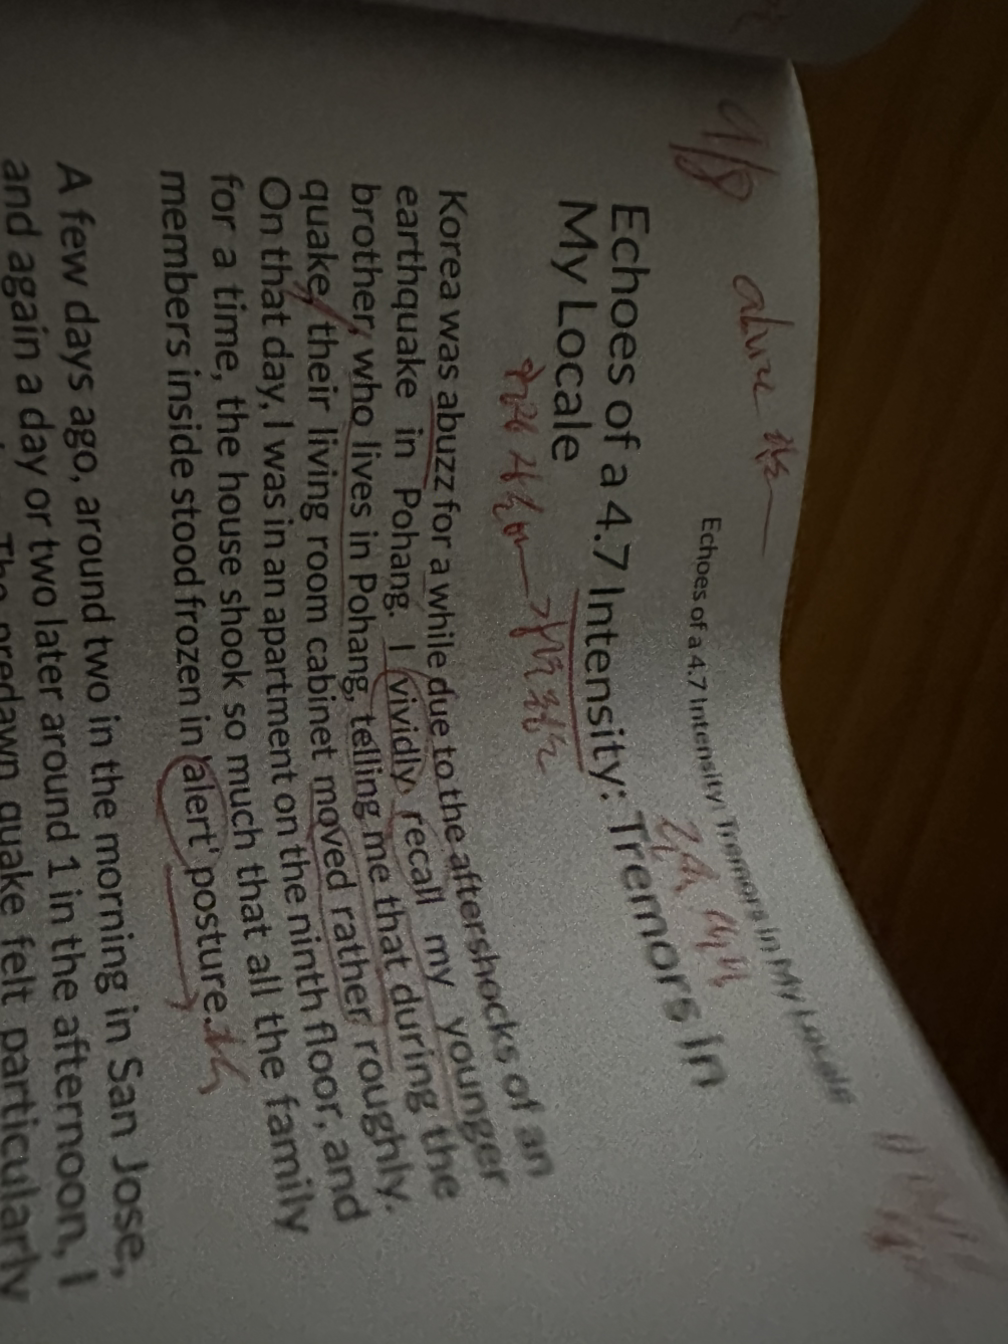 Echoes of a 4.7 Intensity: Tremors in My Locale
Echoes of a 4.7 Intensity: Tremors in
My Locale
Korea was abuzz for a while due to the aftershocks of an
earthquake in Pohang. I vividly recall my younger
brother, who lives in Pohang, telling me that during the
quake, their living room cabinet moved rather roughly.
On that day, I was in an apartment on the ninth floor, and
for a time, the house shook so much that all the family
members inside stood frozen in 'alert' posture.
A few days ago, around two in the morning in San Jose,
and again a day or two later around 1 in the afternoon, I
The predawn quake felt particularly